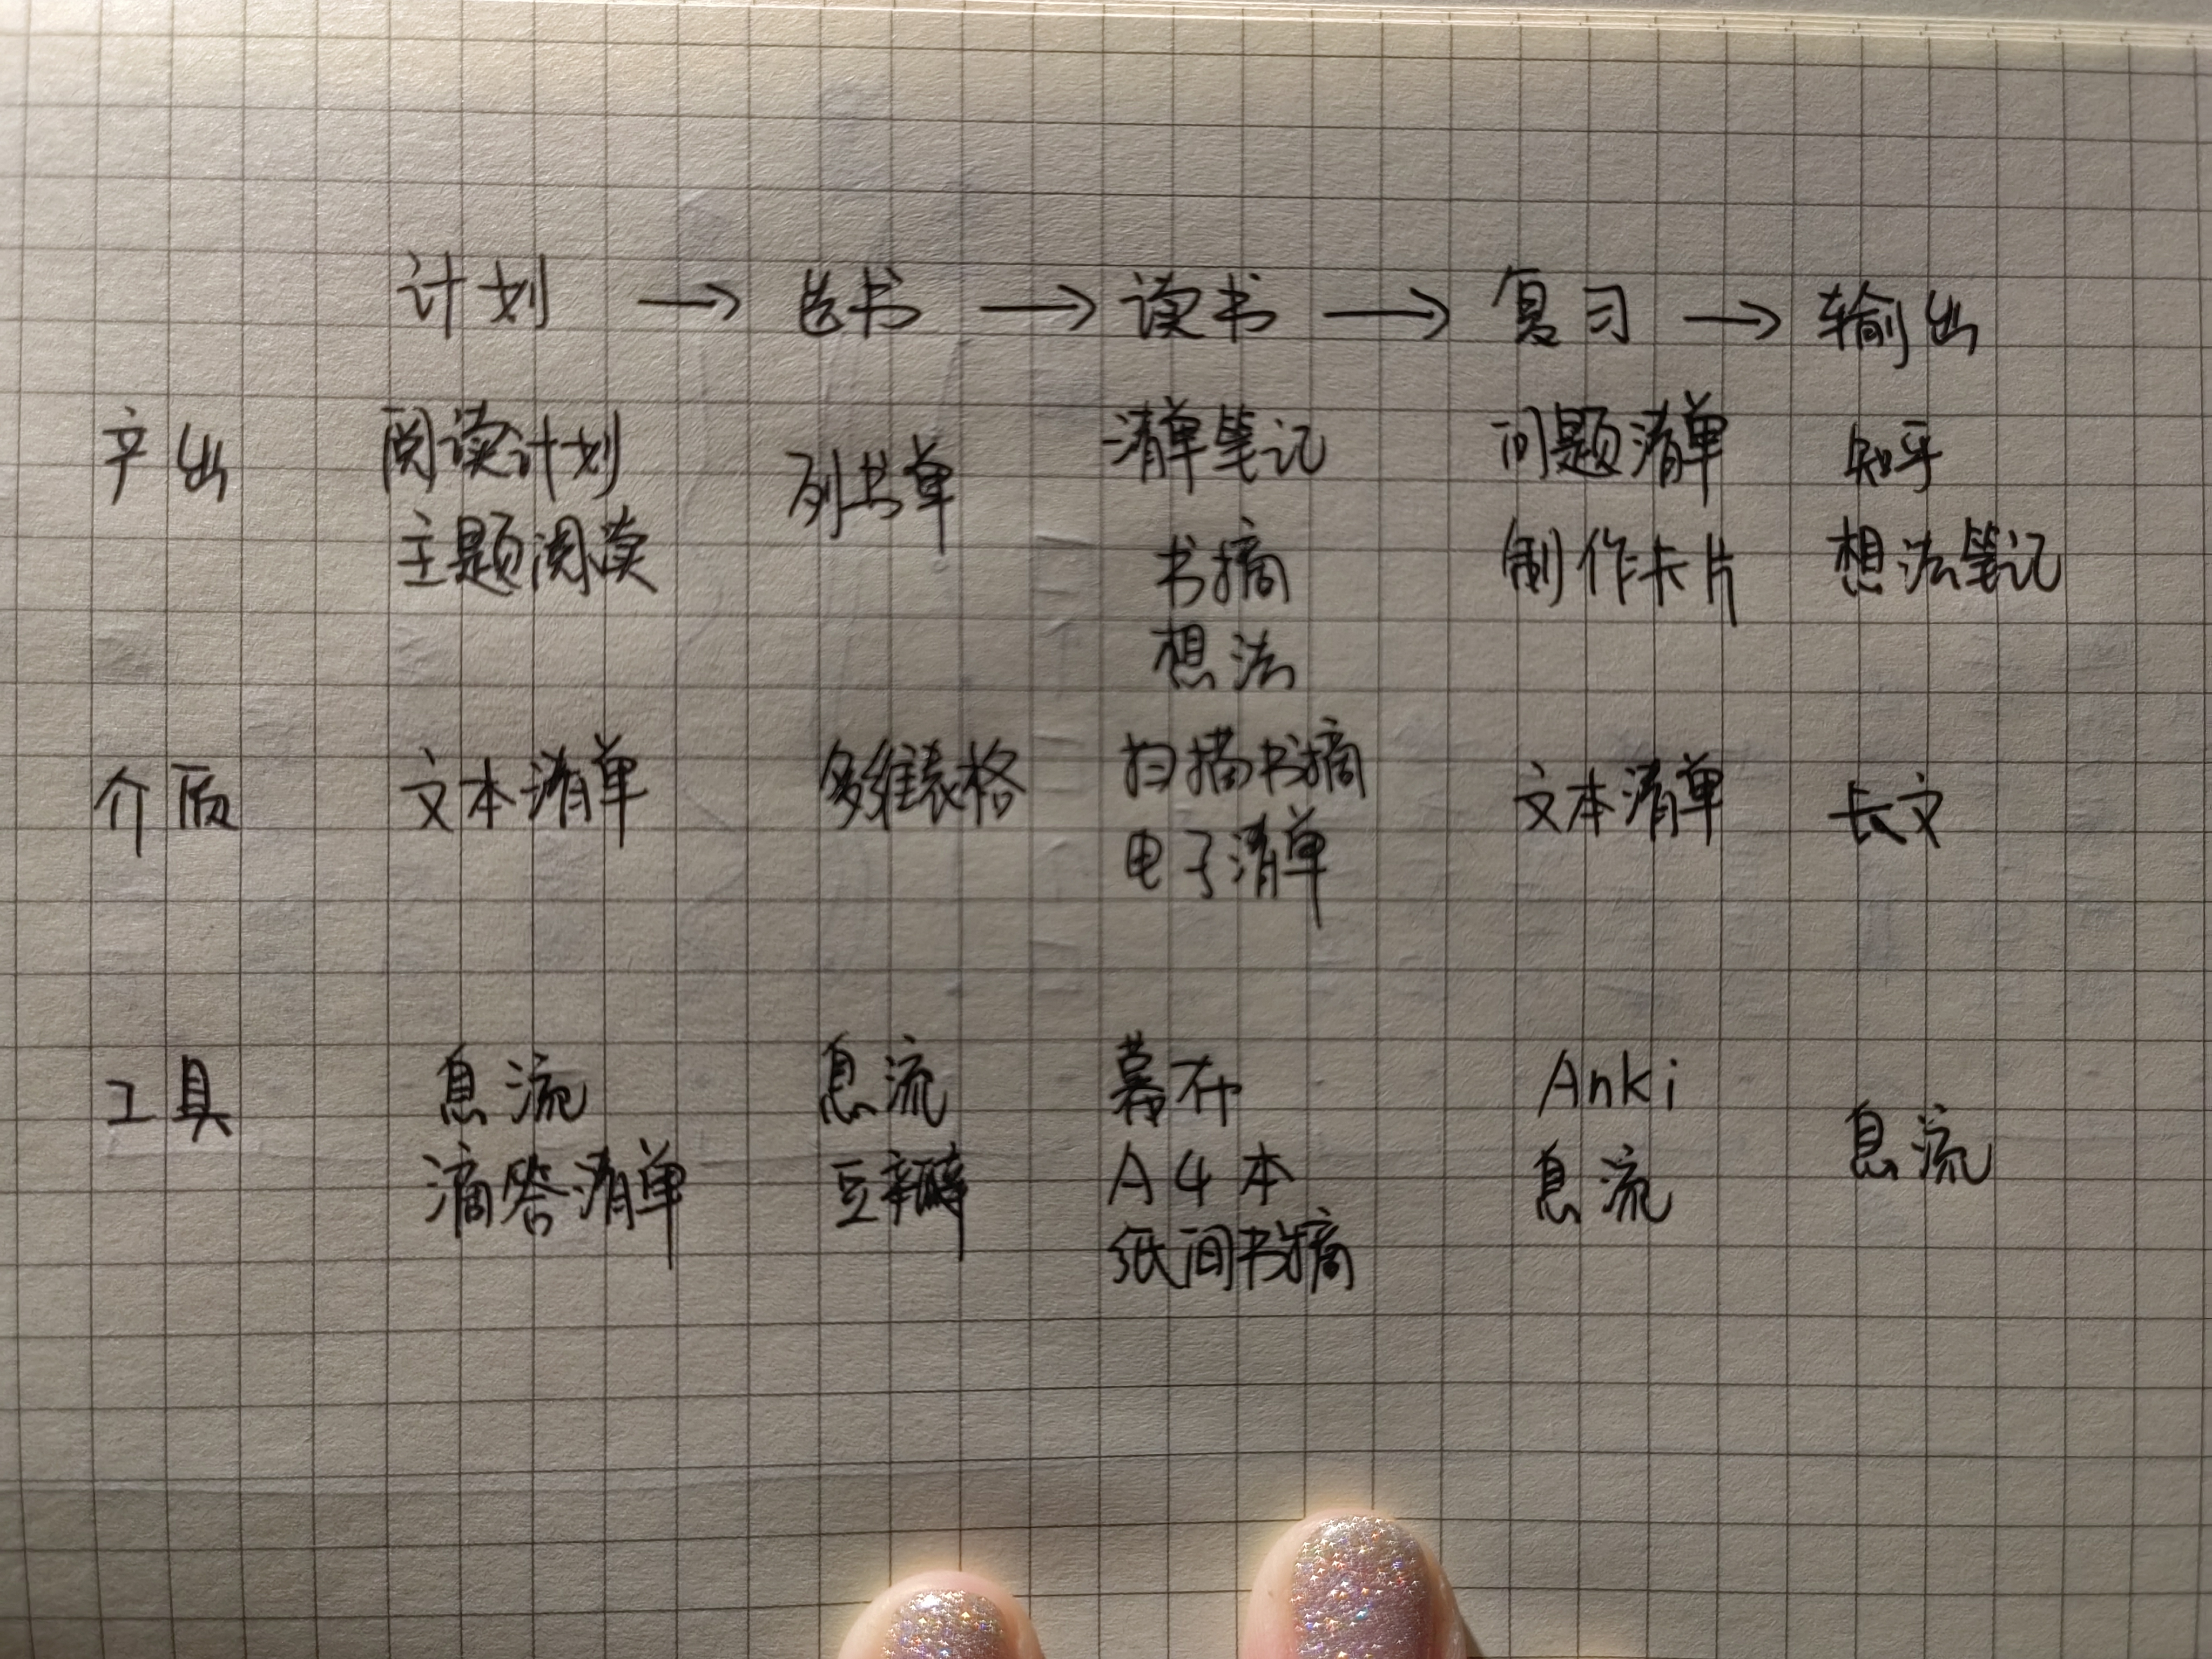 计划 → 选书 → 读书 → 复习 → 输出
产出 阅读计划 列书单 清单笔记 问题清单 知乎
主题阅读 书摘 制作卡片 想法笔记
想法
介质 文本清单 多维表格 扫描书摘 文本清单 长文
电子清单
工具 息流 息流 幕布 Anki 息流
滴答清单 豆瓣 A4本 息流
纸间书摘